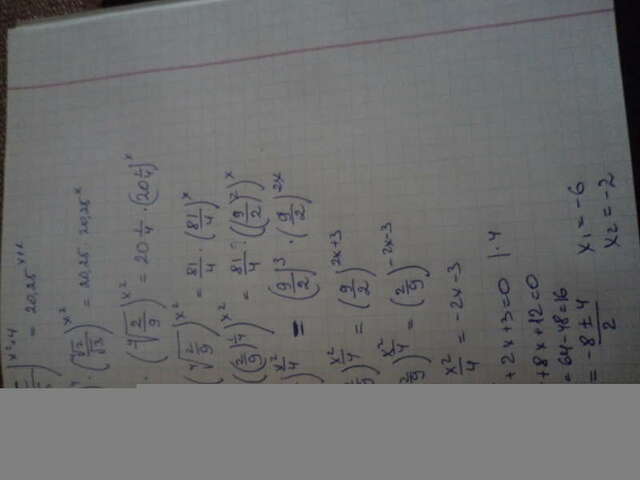 )^{x²+4} = 20,25^{x+1}
· (∜2/√3)^{x²} = 20,25 · 20,25^x
· (∜(2/9))^{x²} = 20 1/4 · (20 1/4)^x
(∜(2/9))^{x²} = 81/4 · (81/4)^x
((2/9)^{1/4})^{x²} = 81/4 · ((9/2)²)^x
)^{x²/4} = (9/2)³ · (9/2)^{2x}
)^{x²/4} = (9/2)^{2x+3}
)^{x²/4} = (2/9)^{-2x-3}
x²/4 = -2x-3
+ 2x+3=0 |·4
+8x+12=0
= 64-48=16
= (-8±4)/2 x₁=-6
x₂=-2